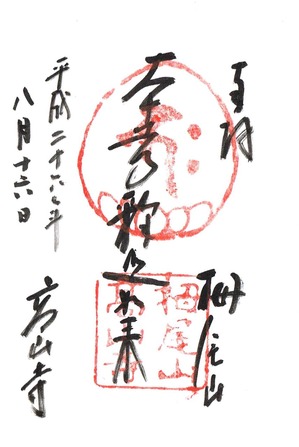 奉拝
栂尾山
本尊釈迦如来
平成二十六年
八月十六日
高山寺
栂尾山
高山寺